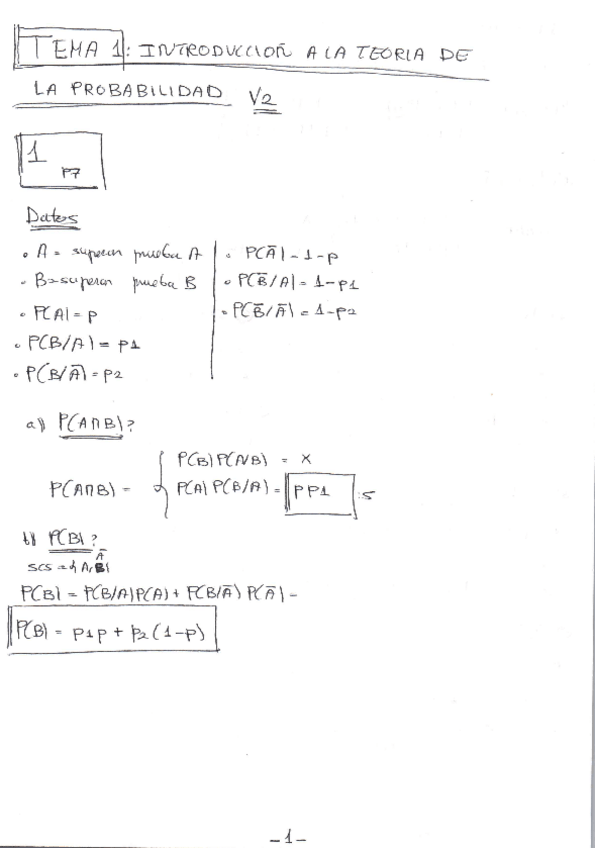 TEMA 1: INTRODUCCION A LA TEORIA DE
LA PROBABILIDAD V2
1
P7
Datos
• A = superan prueba A
• B = superan prueba B
• P(A) = p
• P(B/A) = p1
• P(B/Ā) = p2
• P(Ā) = 1-p
• P(B̄/A) = 1-p1
• P(B̄/Ā) = 1-p2
a) P(A∩B)?
P(A∩B) = { P(B) P(A/B) = X
P(A) P(B/A) = PP1 :S
b) P(B)?
SCS = {A, Ā}
P(B) = P(B/A)P(A) + P(B/Ā) P(Ā) =
P(B) = p1p + p2(1-p)
-1-